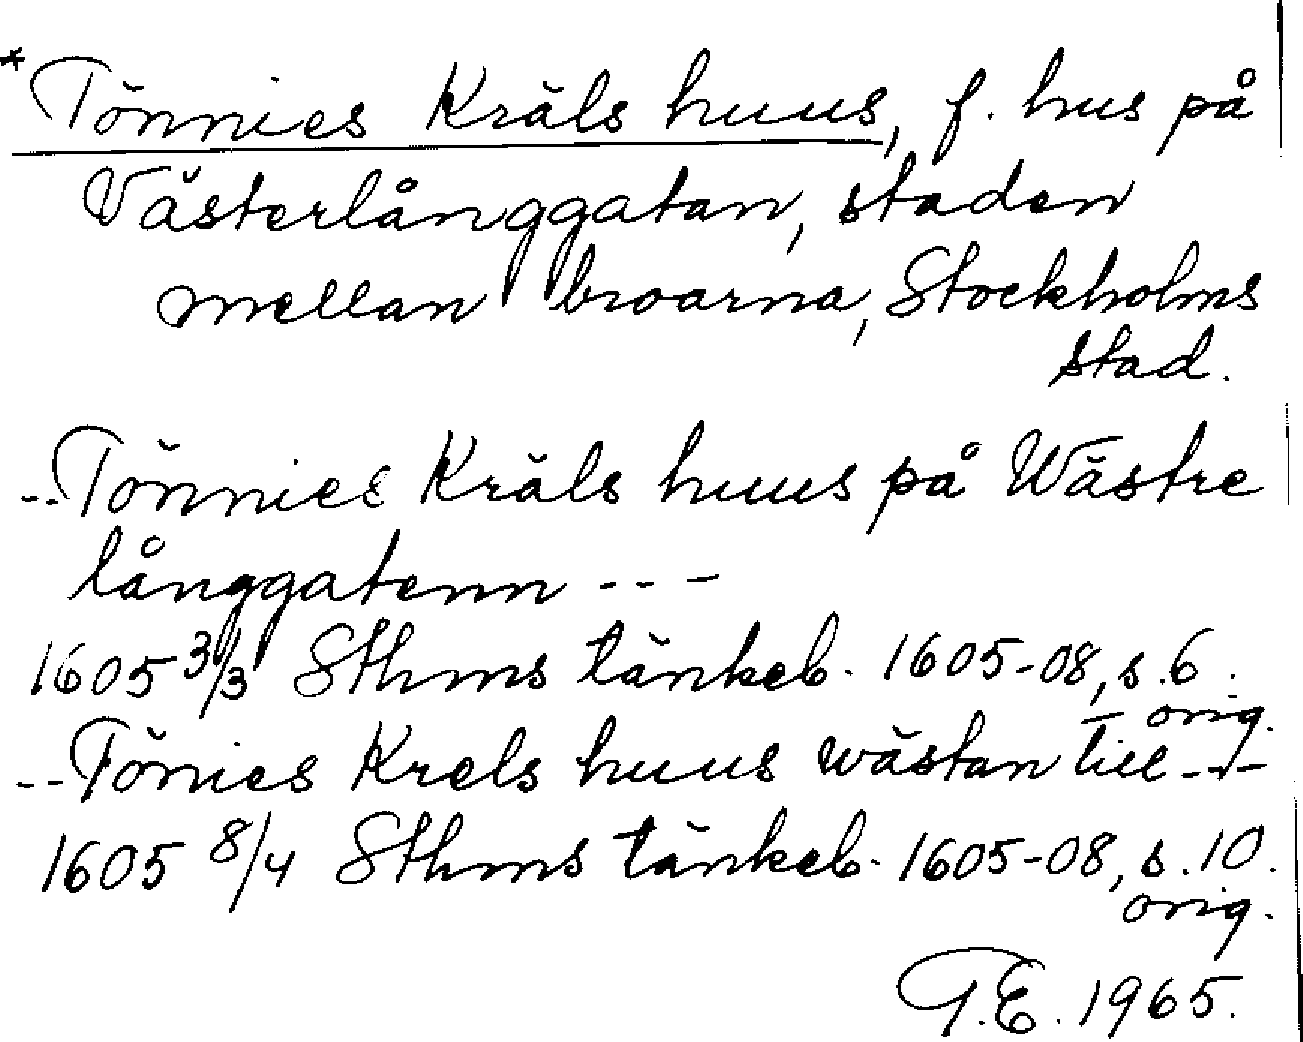 * Tönnies Kräls huus, f. hus på
Västerlånggatan, staden
mellan broarna, Stockholms
stad.
-- Tönnies Kräls huus på Wästre
långgatenn ---
1605 3/3 Sthms tänkeb. 1605-08, s. 6.
orig.
-- Tönies Krels huus wästan till ---
1605 8/4 Sthms tänkeb. 1605-08, s. 10.
orig.
T.E. 1965.